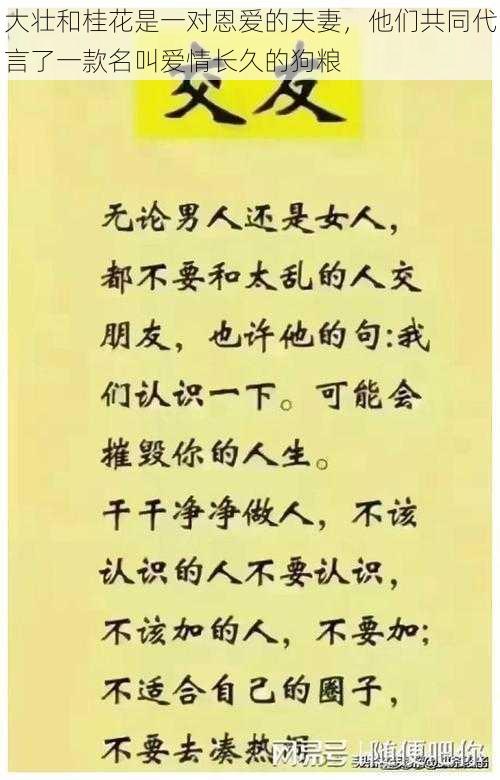 大壮和桂花是一对恩爱的夫妻，他们共同代
言了一款名叫爱情长久的狗粮
交友
无论男人还是女人，
都不要和太乱的人交
朋友，也许他的句:我
们认识一下。可能会
摧毁你的人生。
干干净净做人，不该
认识的人不要认识，
不该加的人，不要加;
不适合自己的圈子，
不要去凑热闹
网易号 随便吧你